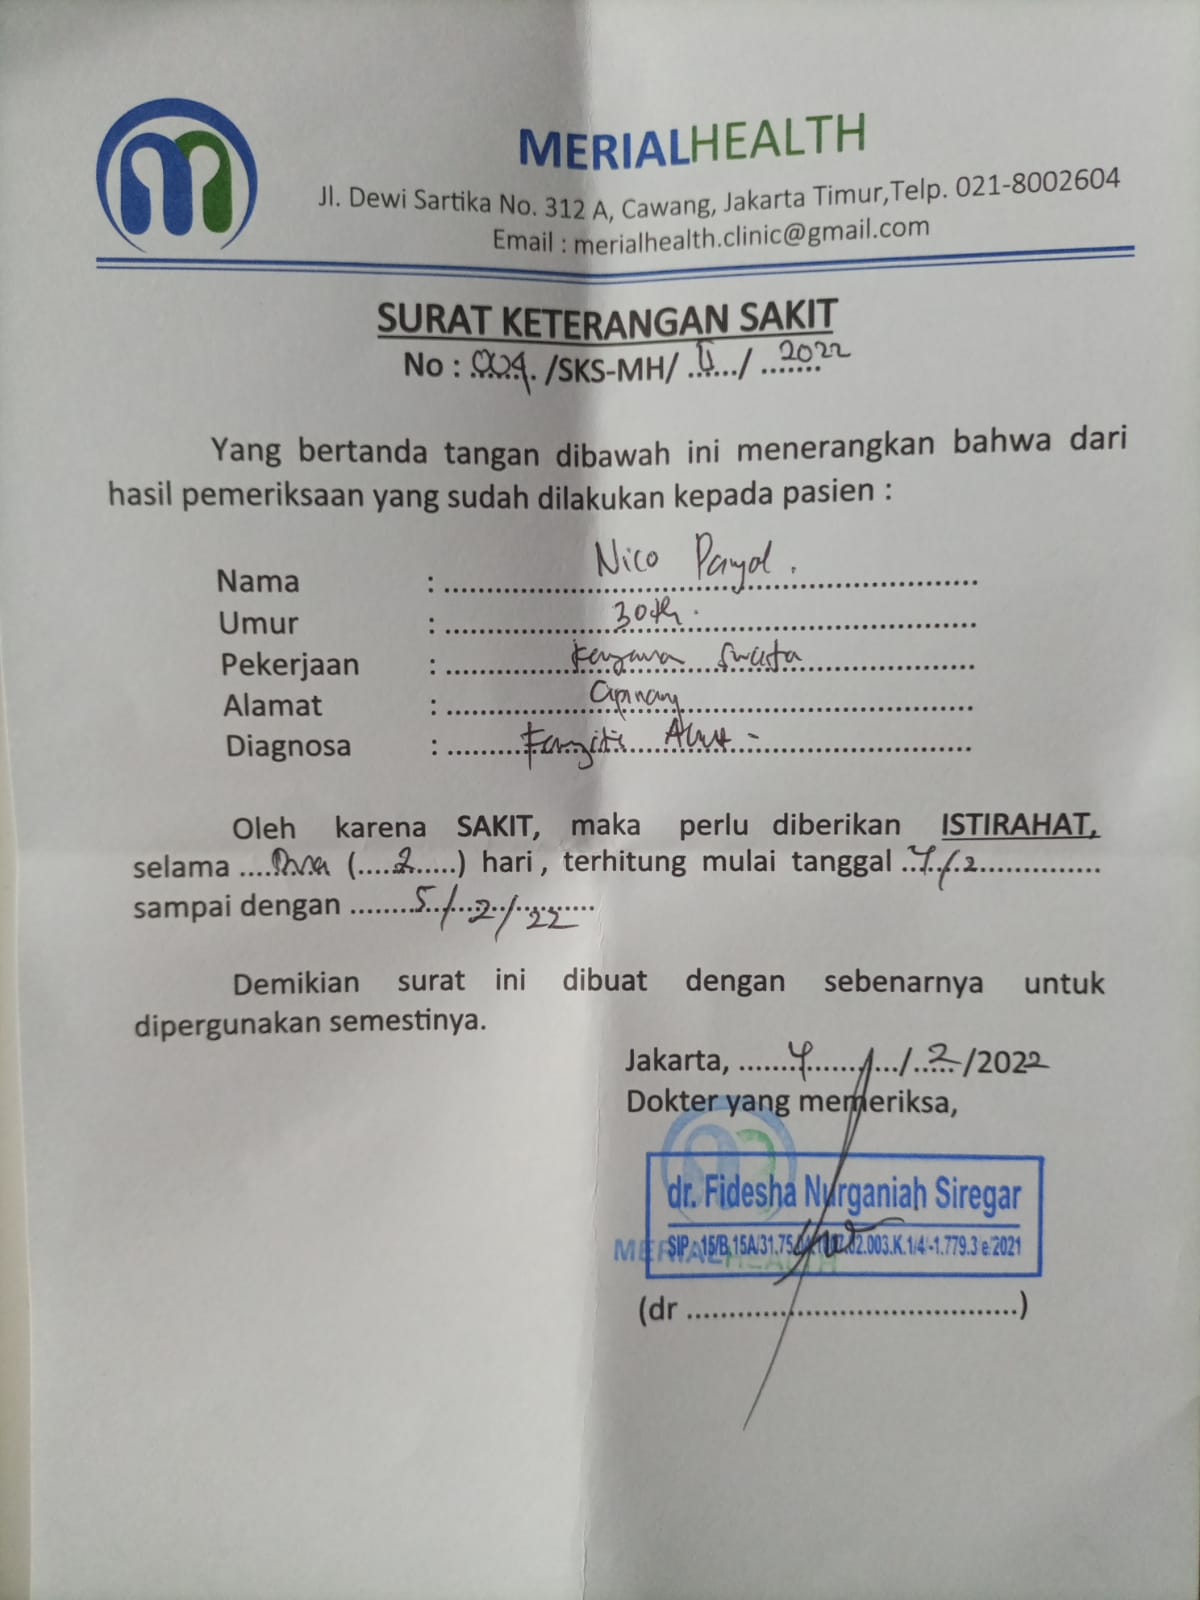 MERIALHEALTH
Jl. Dewi Sartika No. 312 A, Cawang, Jakarta Timur,Telp. 021-8002604
Email : merialhealth.clinic@gmail.com
SURAT KETERANGAN SAKIT
No : 004. /SKS-MH/ II / 2022
Yang bertanda tangan dibawah ini menerangkan bahwa dari
hasil pemeriksaan yang sudah dilakukan kepada pasien :
Nama : Nico
Umur : 30 th.
Pekerjaan : Swasta
Alamat : Cipinang
Diagnosa :
Oleh karena SAKIT, maka perlu diberikan ISTIRAHAT,
selama Dua (2) hari , terhitung mulai tanggal 4/2
sampai dengan 5/2/22
Demikian surat ini dibuat dengan sebenarnya untuk
dipergunakan semestinya.
Jakarta, 4 / 2 /2022
Dokter yang memeriksa,
dr. Fidesha Nurganiah Siregar
MERIALHEALTH
(dr ......................................)